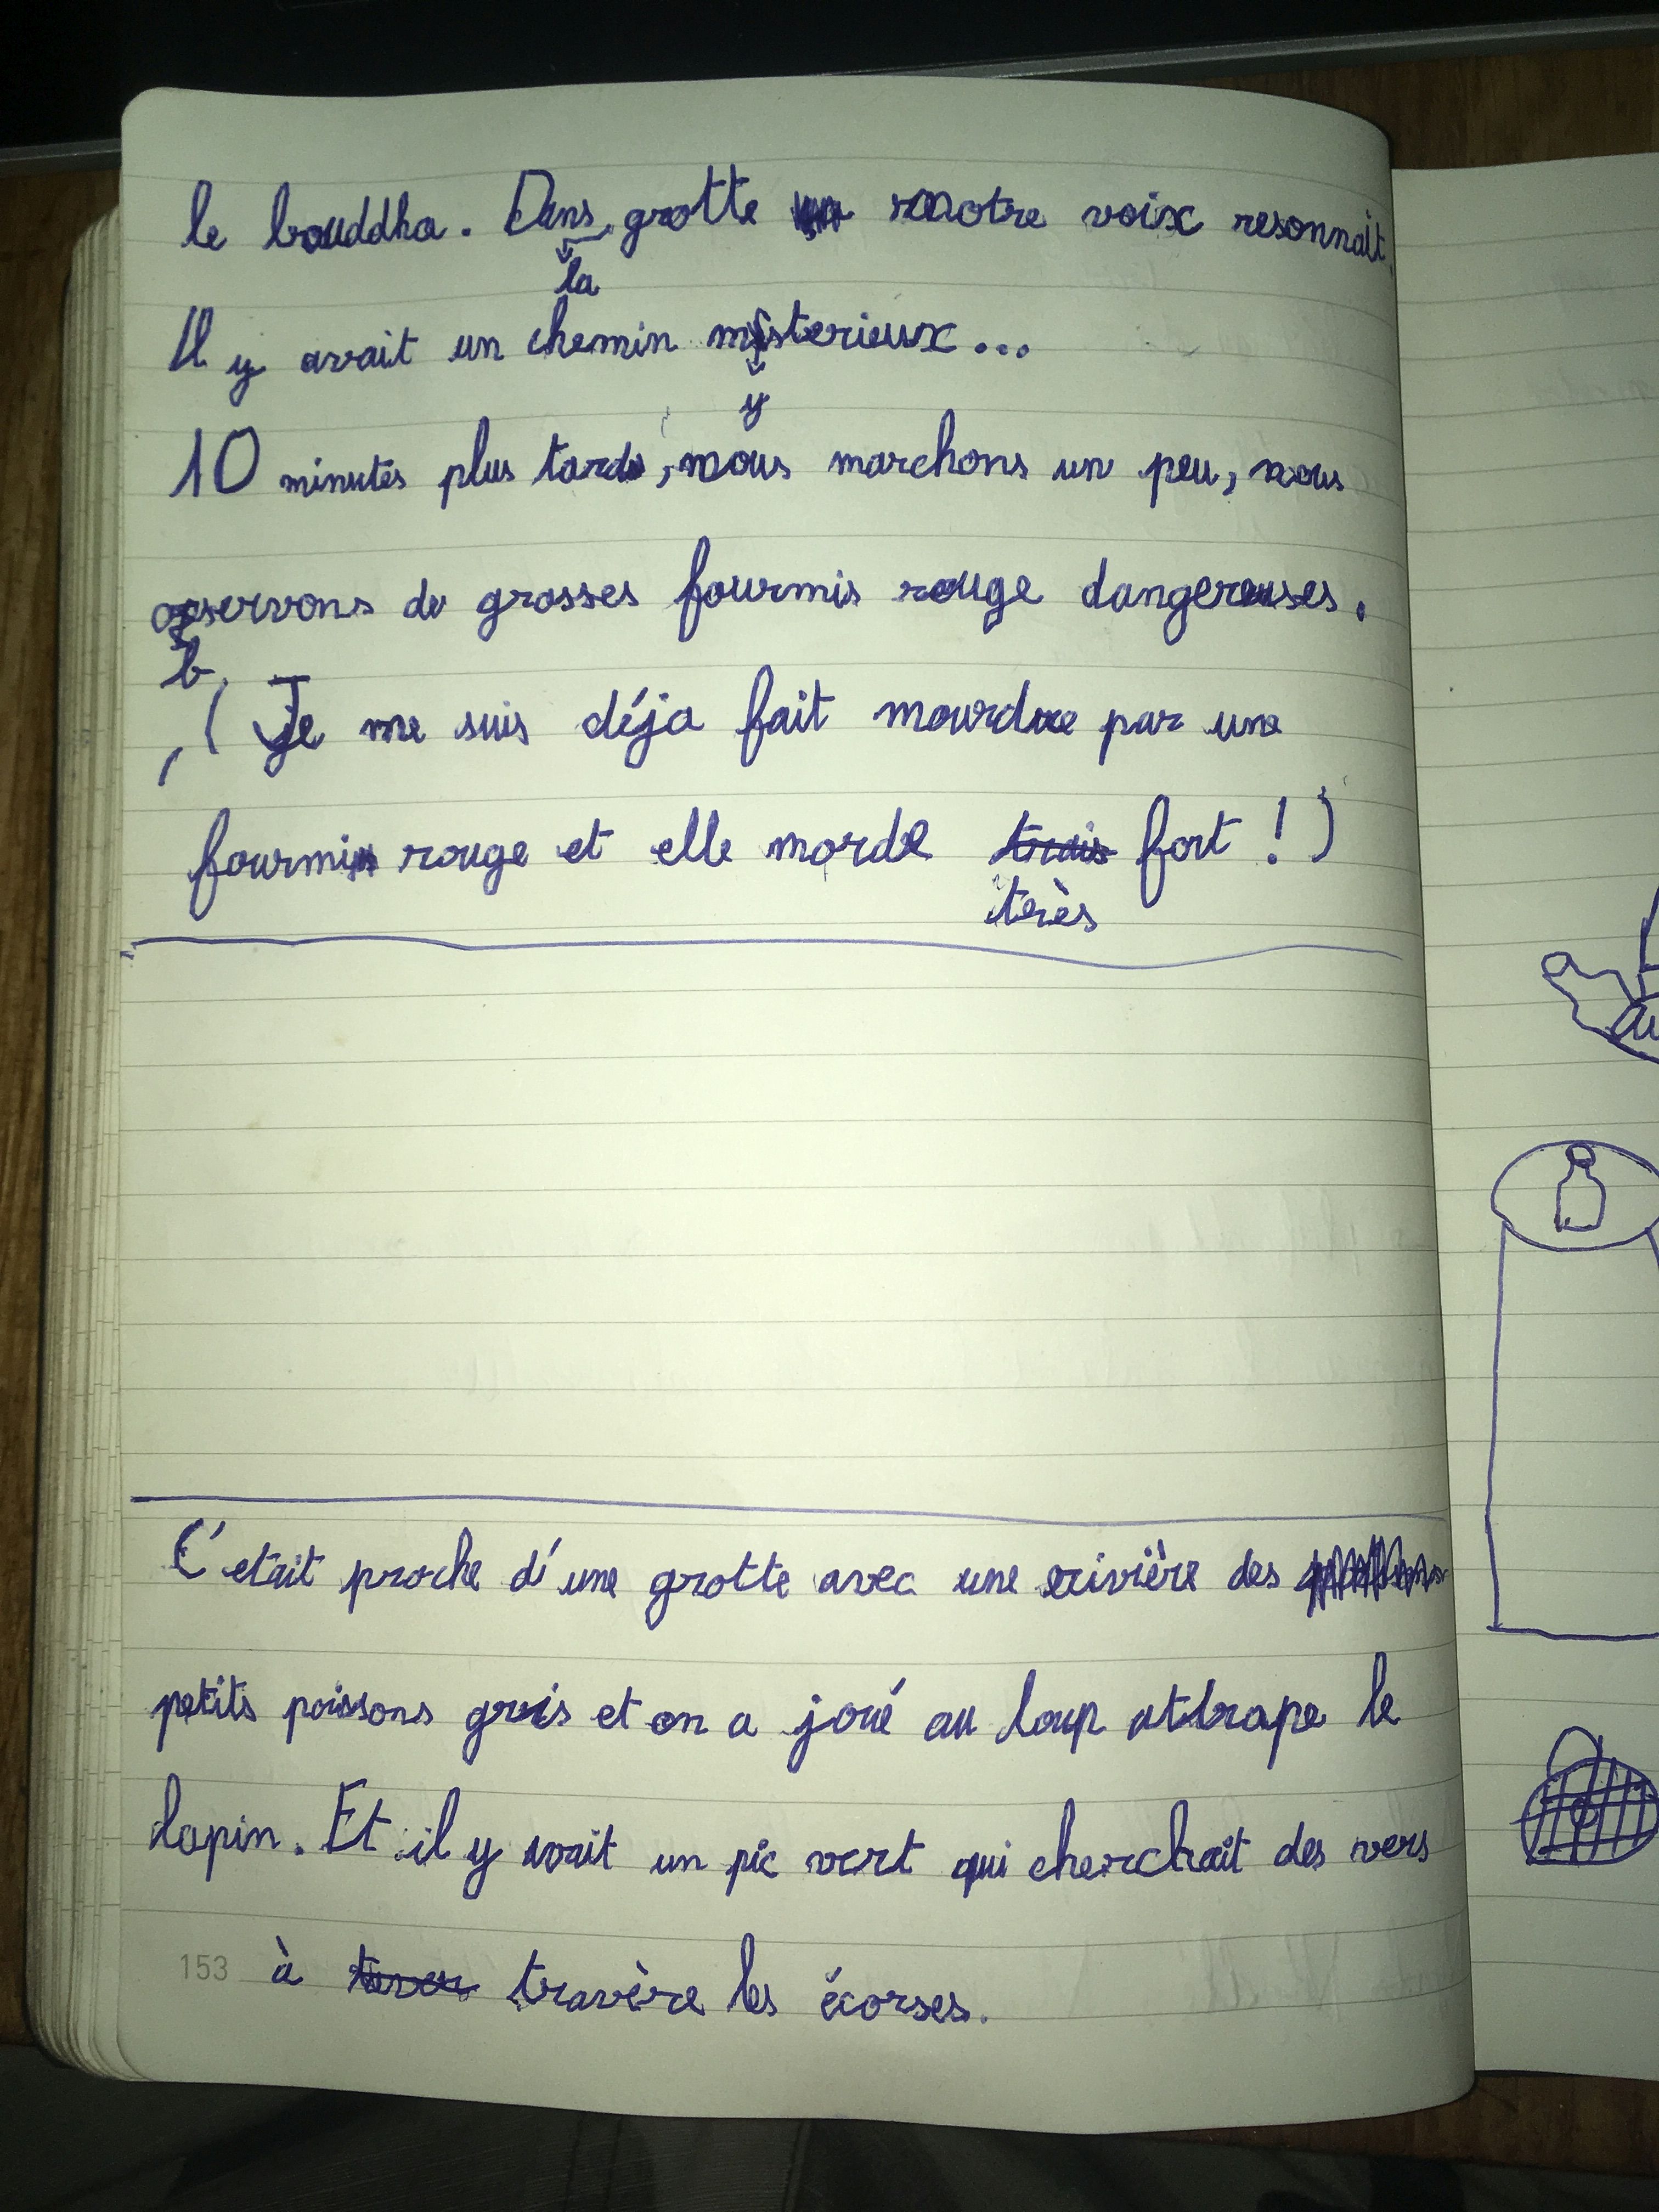 le bouddha. Dans grotte notre voix resonnait.
la
Il y avait un chemin misterieux...
y
10 minutes plus tard, nous marchons un peu, nous
opservons de grosses fourmis rouge dangereuses.
b
( Je me suis déja fait mourdre par une
fourmis rouge et elle morde trais fort ! )
très
C'etait proche d'une grotte avec une rivière des
petits poissons gris et on a joué au loup attrape le
lapin. Et il y avait un pic vert qui cherchait des vers
153 à travère les écorses.